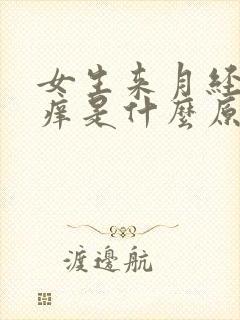 女生来月经
痒是什麼原
渡邊航